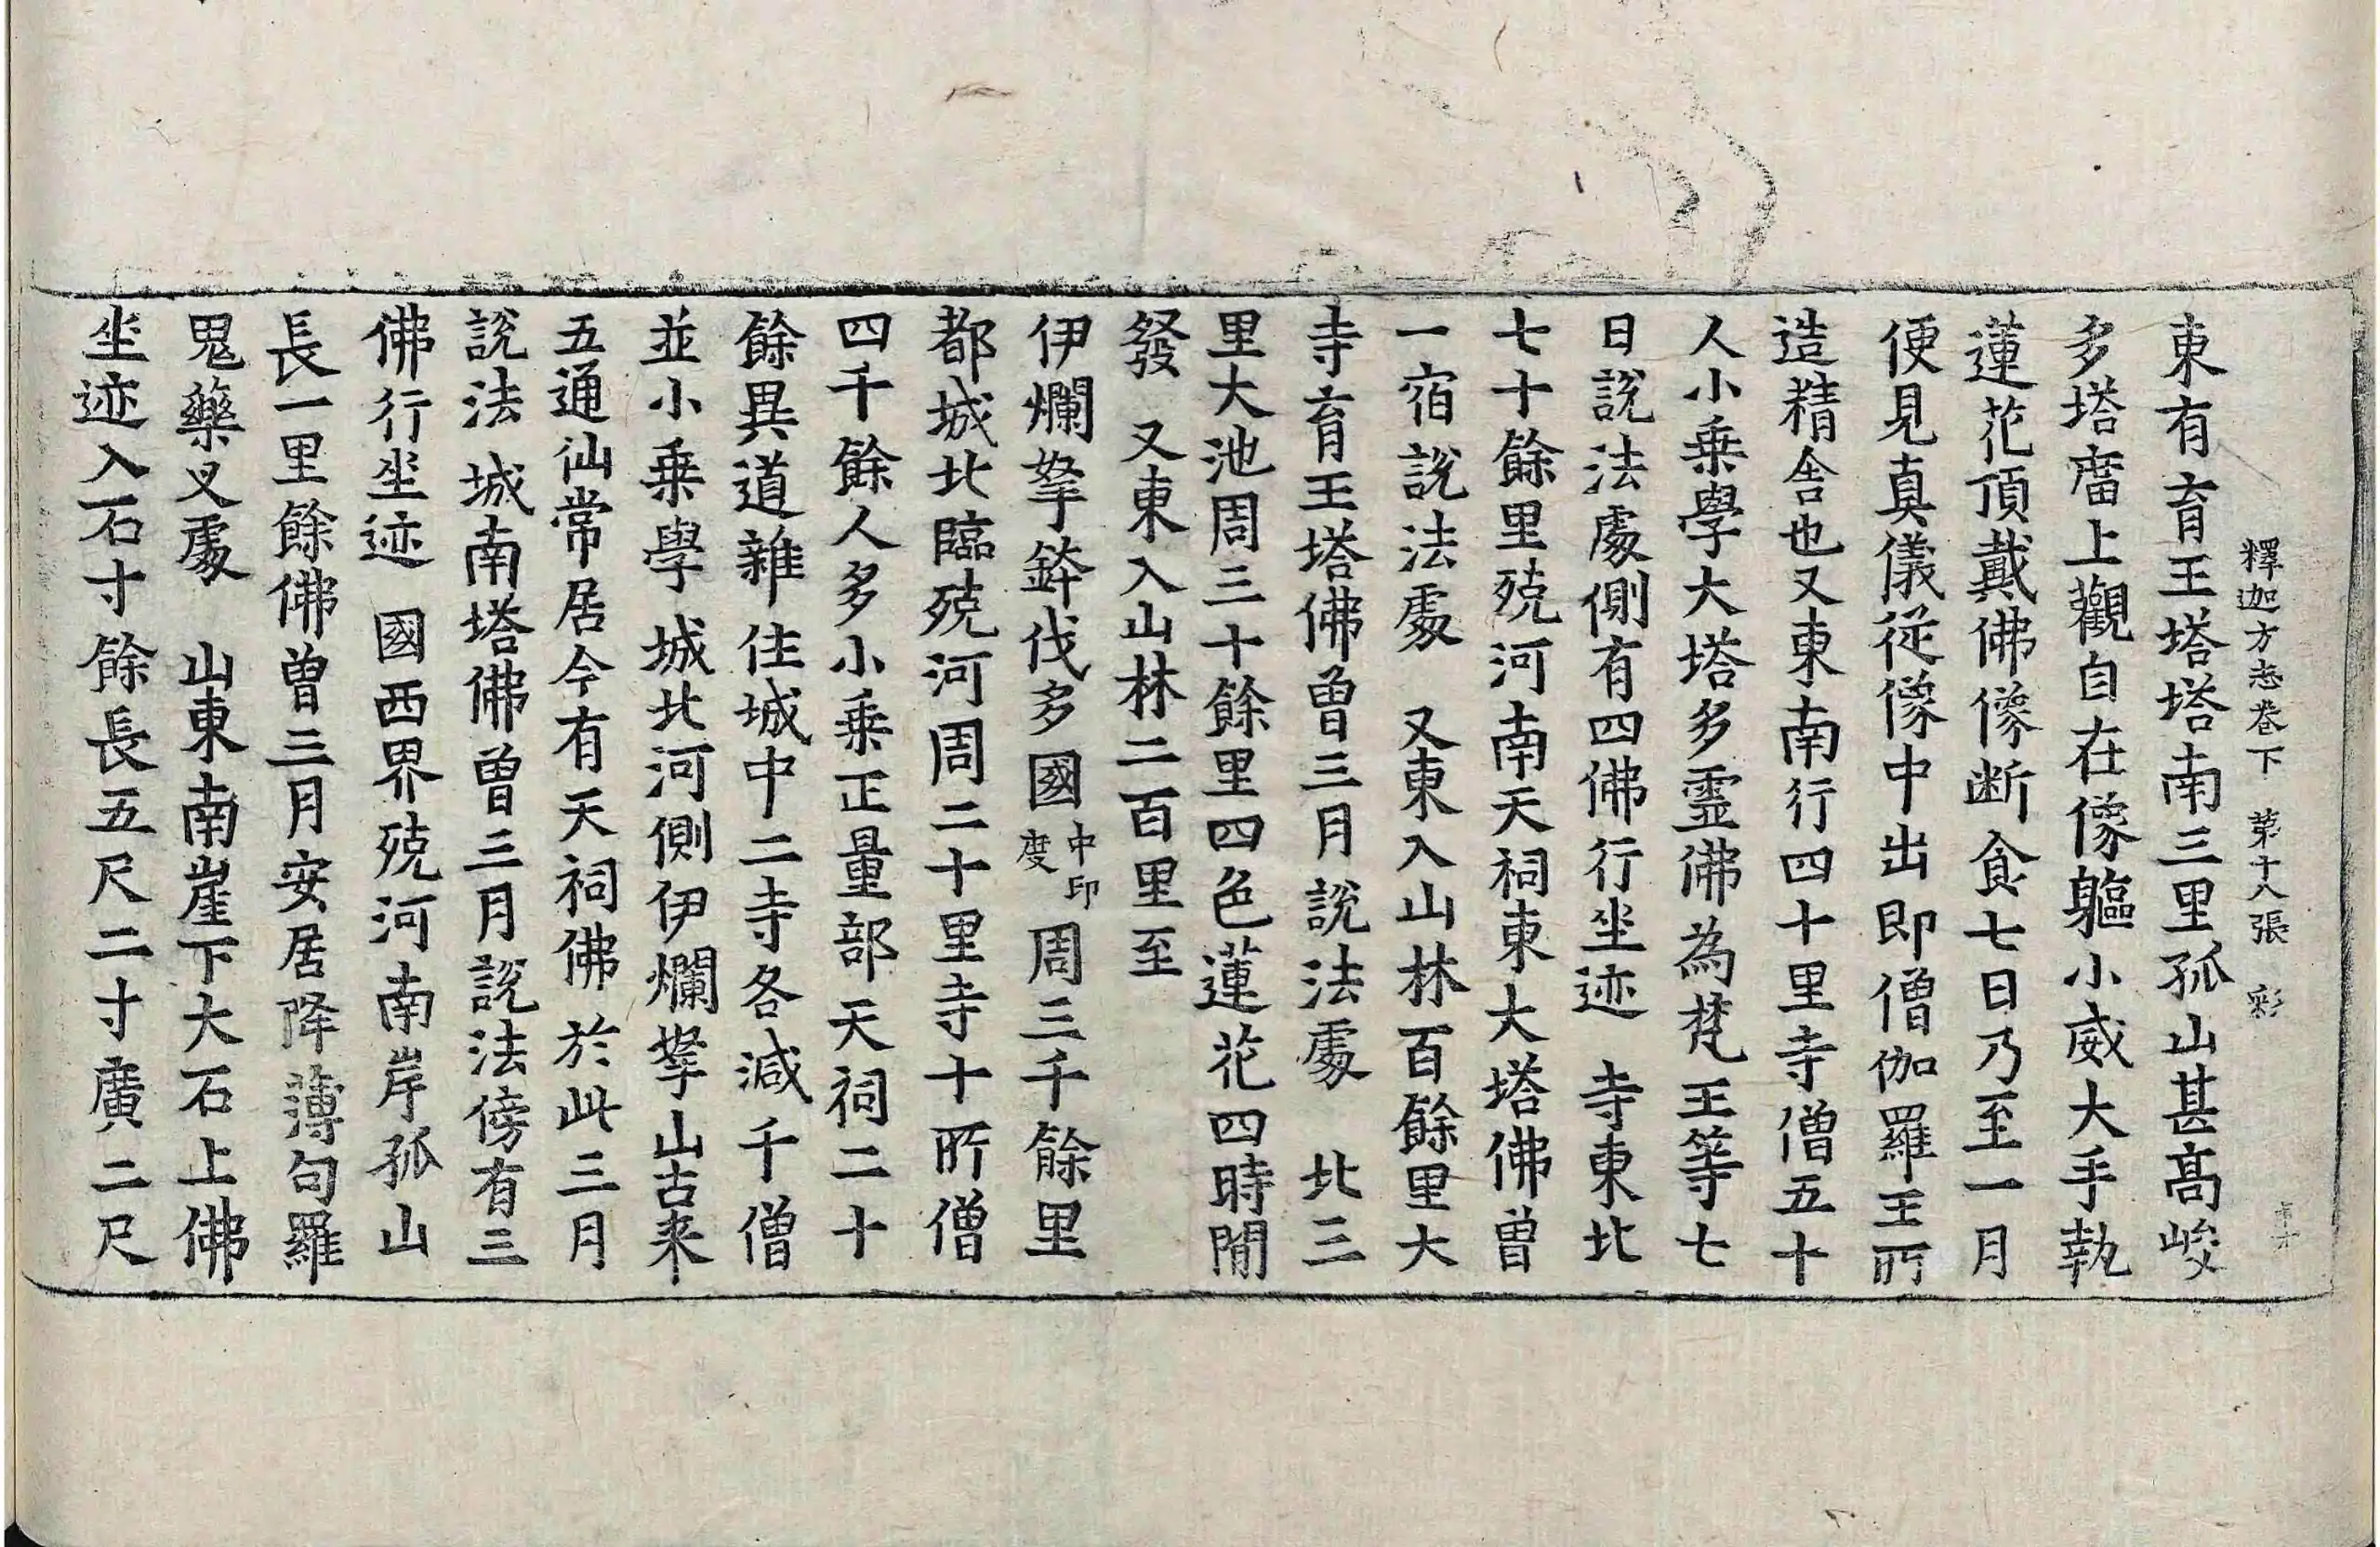 釋迦方志卷下 第十八張 彩
東有育王塔塔南三里孤山甚髙峻
多塔庿上觀自在像軀小威大手執
蓮花頂戴佛像断食七日乃至一月
便見真儀從像中出即僧伽羅王所
造精舍也又東南行四十里寺僧五十
人小乗學大塔多霊佛為梵王等七
日說法處側有四佛行坐迹 寺東北
七十餘里殑河南天祠東大塔佛曽
一宿說法處 又東入山林百餘里大
寺育王塔佛曽三月說法處 北三
里大池周三十餘里四色蓮花四時開
發 又東入山林二百里至
伊爛拏鉢伐多國中印度周三千餘里
都城北臨殑河周二十里寺十所僧
四千餘人多小乗正量部天祠二十
餘異道雜住城中二寺各減千僧
並小乗學城北河側伊爛拏山古来
五通仙常居今有天祠佛於此三月
說法 城南塔佛曽三月說法傍有三
佛行坐迹 國西界殑河南岸孤山
長一里餘佛曽三月安居降薄句羅
鬼藥叉處 山東南崖下大石上佛
坐迹入石寸餘長五尺二寸廣二尺